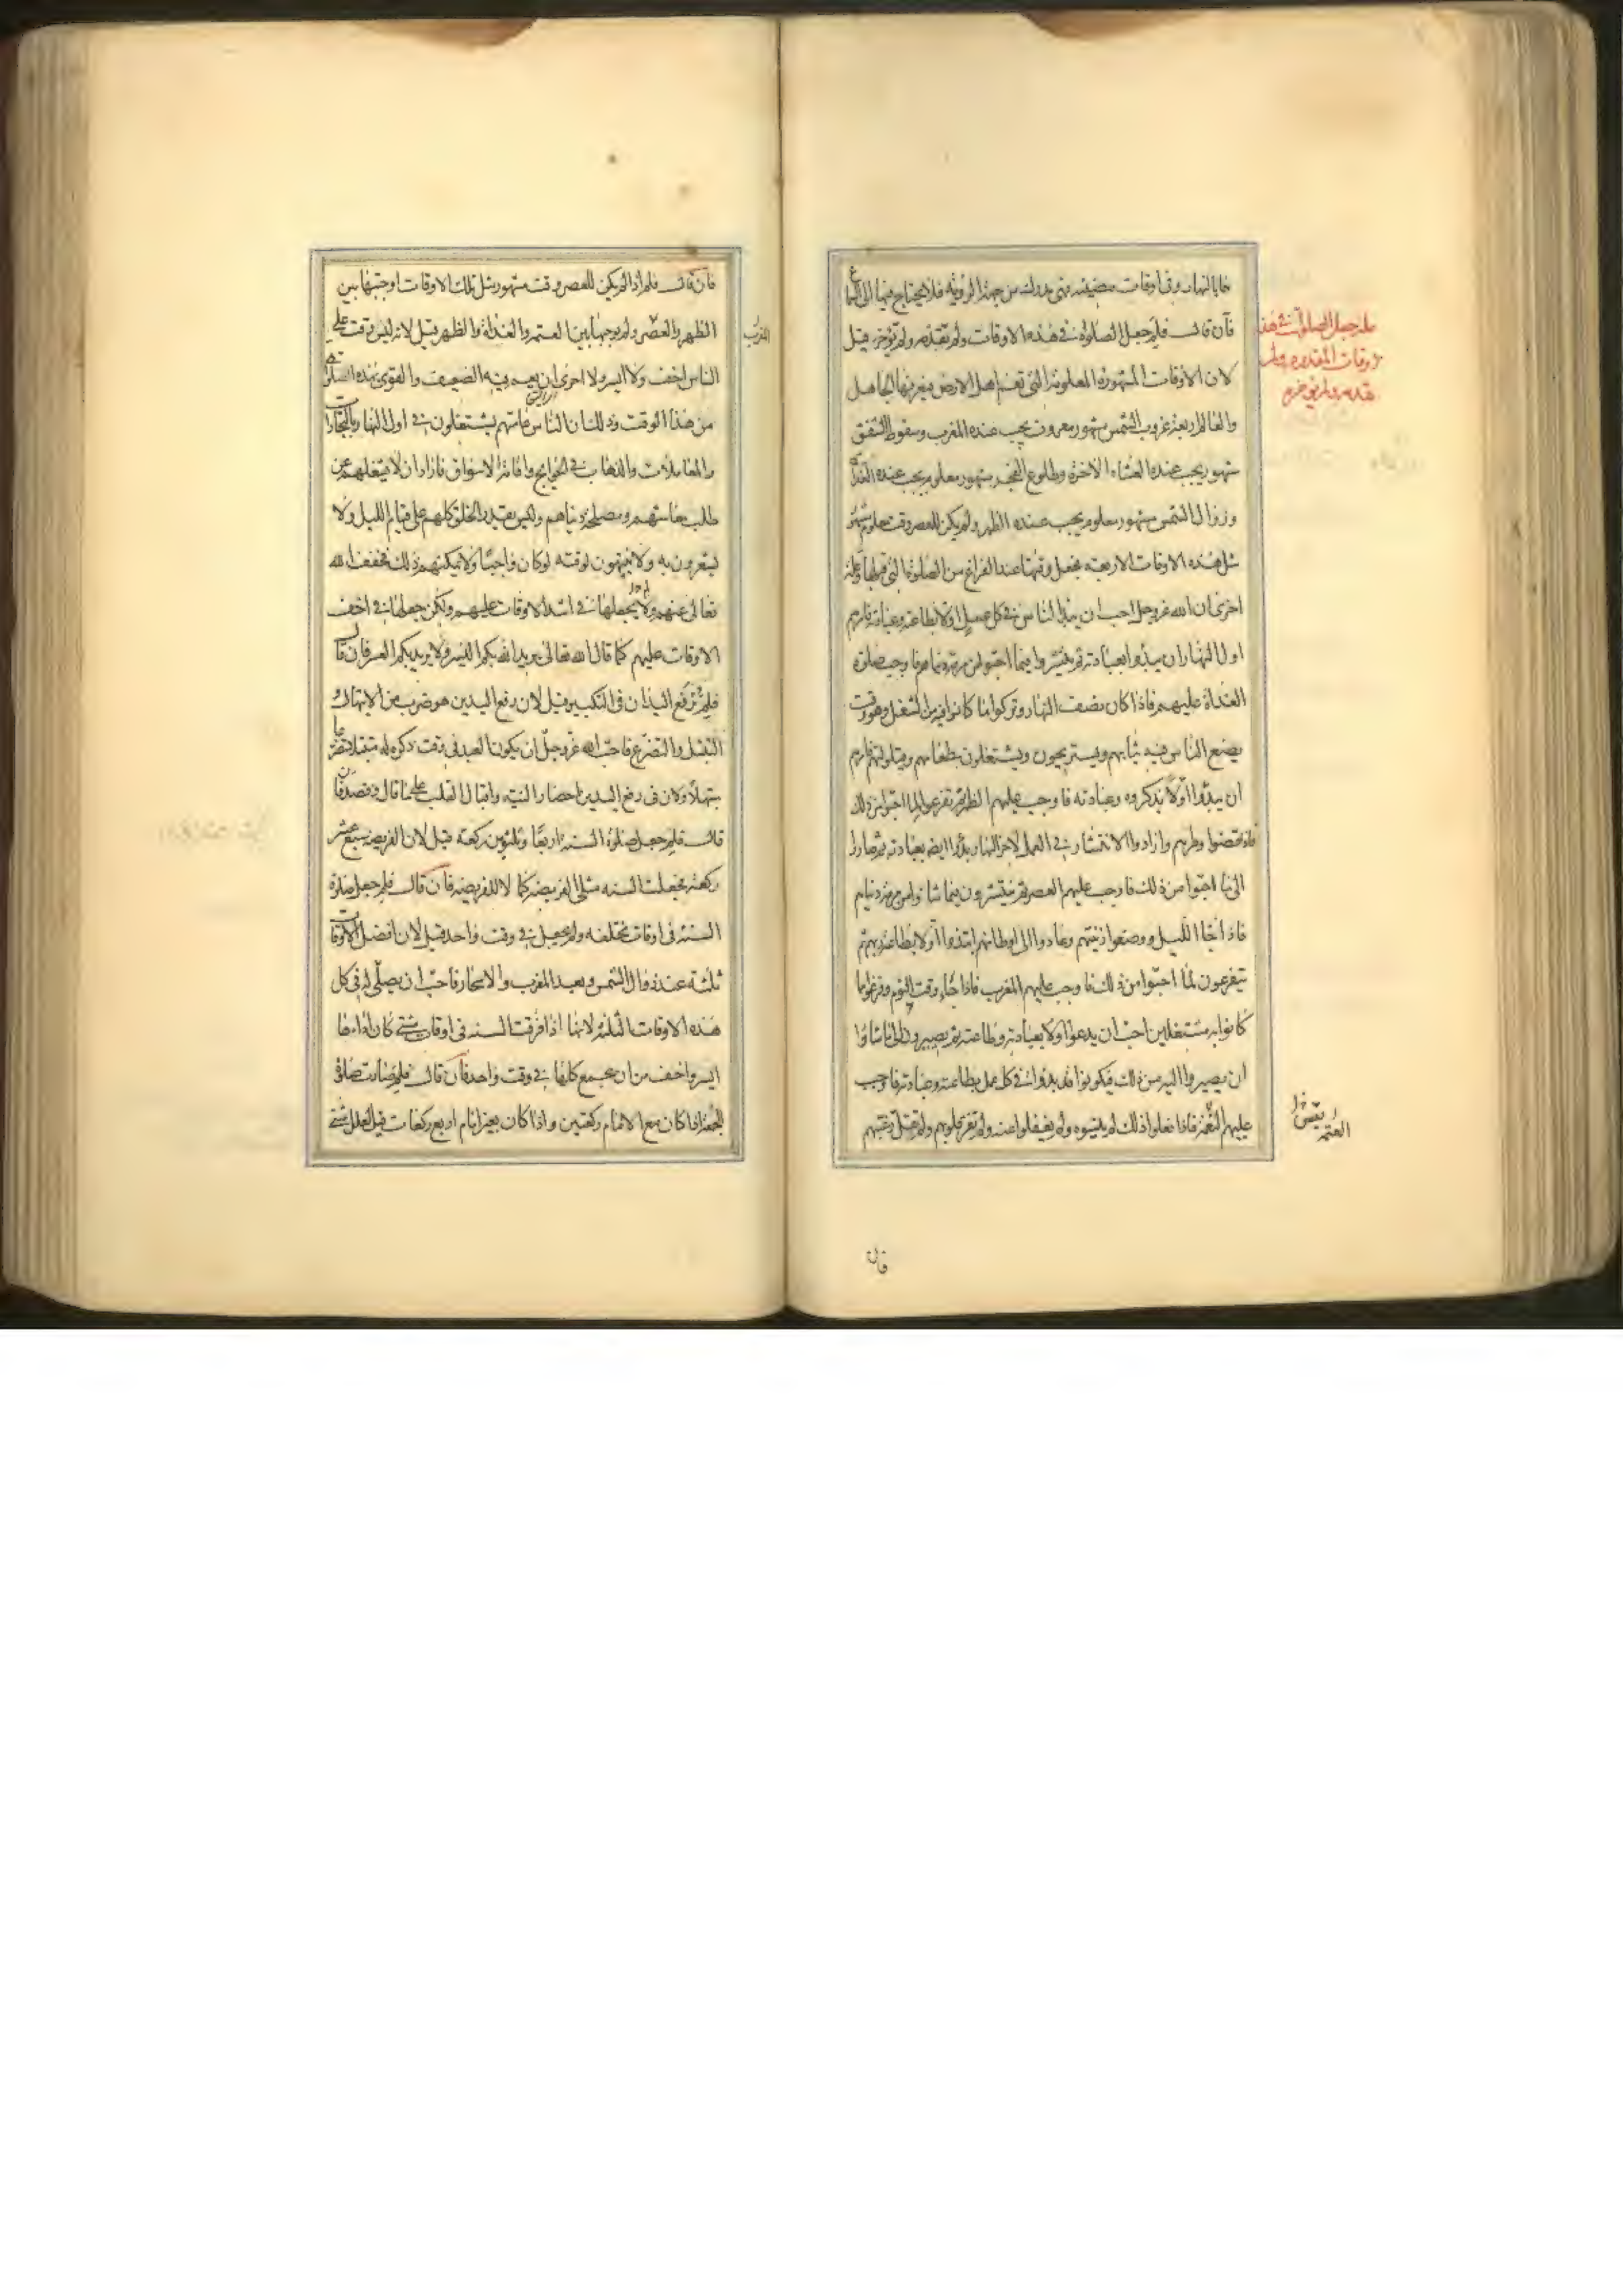 هما بالنهار وفى اوقات مضيئة فهى تدرك من جهة الرؤية فلا يحتاج فيها الى السماع
فان قال فلم جعل الصلوة فى هذه الاوقات ولم تقدم ولم تؤخر قيل
لان الاوقات المشهورة المعلومة التى تعم اهل الارض فيعرفها الجاهل
والعالم اربعة غروب الشمس مشهور معروف يجب عنده المغرب وسقوط الشفق
مشهور يجب عنده العشاء الاخرة وطلوع الفجر مشهور معلوم يجب عنده الغداة
وزوال الشمس مشهور معلوم يجب عنده الظهر ولم يكن للعصر وقت معلوم مشهور
مثل هذه الاوقات الاربعة فجعل وقتها عند الفراغ من الصلوة التى قبلها وعلة
اخرى ان الله عز وجل احب ان يبدأ الناس فى كل عمل اولا بطاعته وعبادته فامرهم
اول النهار ان يبدؤا بعبادته ثم ينتشروا فيما احبوا من مرمة دنياهم فاوجب صلوة
الغداة عليهم فاذا كان نصف النهار وتركوا ما كانوا فيه من الشغل وهو وقت
يضع الناس فيه ثيابهم ويستريحون ويشتغلون بطعامهم وقيلولتهم فامرهم
ان يبدؤا اولا بذكره وعبادته فاوجب عليهم الظهر ثم تفرغوا لما احبوا من ذلك
فاذا قضوا وطرهم وارادوا الانتشار فى العمل لاخر النهار بدؤا ايضا بعبادته ثم صاروا
الى ما احبوا من ذلك فاوجب عليهم العصر ثم ينتشرون فيما شاؤا من مرمة دنياهم
فاذا جاء الليل ووضعوا زينتهم وعادوا الى اوطانهم ابتدؤا اولا بطاعة ربهم ثم
يتفرغون لما احبوا من ذلك فاوجب عليهم المغرب فاذا جاء وقت النوم وفرغوا مما
كانوا به مشتغلين احب ان يبدؤا اولا بعبادته وطاعته ثم يصيرون الى ما شاؤا
ان يصيروا اليه من ذلك فيكونوا قد بدؤا فى كل عمل بطاعته وعبادته فاوجب
عليهم العتمة فاذا فعلوا ذلك لم ينسوه ولم يغفلوا عنه ولم تقس قلوبهم ولم تقل رغبتهم
علة جعل الصلوات فى هذه
الاوقات المقدرة ولم
تقدم ولم تؤخر
العتمة
فان
فان قال فلم اذا لم يكن للعصر وقت مشهور مثل تلك الاوقات اوجبها بين
الظهر والعصر ولم يوجبها بين العتمة والغداة والظهر قيل لانه ليس وقت على
المغرب
الناس اخف ولا ايسر ولا احرى ان يعم فيه الضعيف والقوى بهذه الصلوة
من هذا الوقت وذلك ان الناس عامتهم يشتغلون فى اول النهار بالتجارات
والمعاملات والذهاب فى الحوائج واقامة الاسواق فاراد ان لا يشغلهم عن
طلب معاشهم ومصلحة دنياهم وليس يقدر الخلق كلهم على قيام الليل ولا
يشعرون به ولا ينتبهون لوقته لو كان واجبا ولا يمكنهم ذلك فخفف الله
تعالى عنهم ولم يجعلها فى اشد الاوقات عليهم ولكن جعلها فى اخف
الاوقات عليهم كما قال الله تعالى يريد الله بكم اليسر ولا يريد بكم العسر فان قال
فلم ترفع اليدان فى التكبير قيل لان رفع اليدين هو ضرب من الابتهال و
التبتل والتضرع فاحب الله عز وجل ان يكون العبد فى وقت ذكره له متبتلا متضرعا
مبتهلا ولان فى رفع اليدين احضار النية واقبال القلب على ما قال وقصد فان
قال فلم جعل صلوة السنة اربعا وثلثين ركعة قيل لان الفريضة سبع عشر
ركعة فجعلت السنة مثلى الفريضة كمالا للفريضة فان قال فلم جعل صلوة
السنة فى اوقات مختلفة ولم يجعل فى وقت واحد قيل لان افضل الاوقات
ثلثة عند زوال الشمس وبعد المغرب والاسحار فاحب ان يصلى له فى كل
هذه الاوقات الثلثة لانها اذا فرقت السنة فى اوقات شتى كان اداءها
ايسر واخف من ان يجمع كلها فى وقت واحد فان قال فلم صارت صلوة
الجمعة اذا كان مع الامام ركعتين واذا كان بغير امام اربع ركعات قيل لعلل شتى